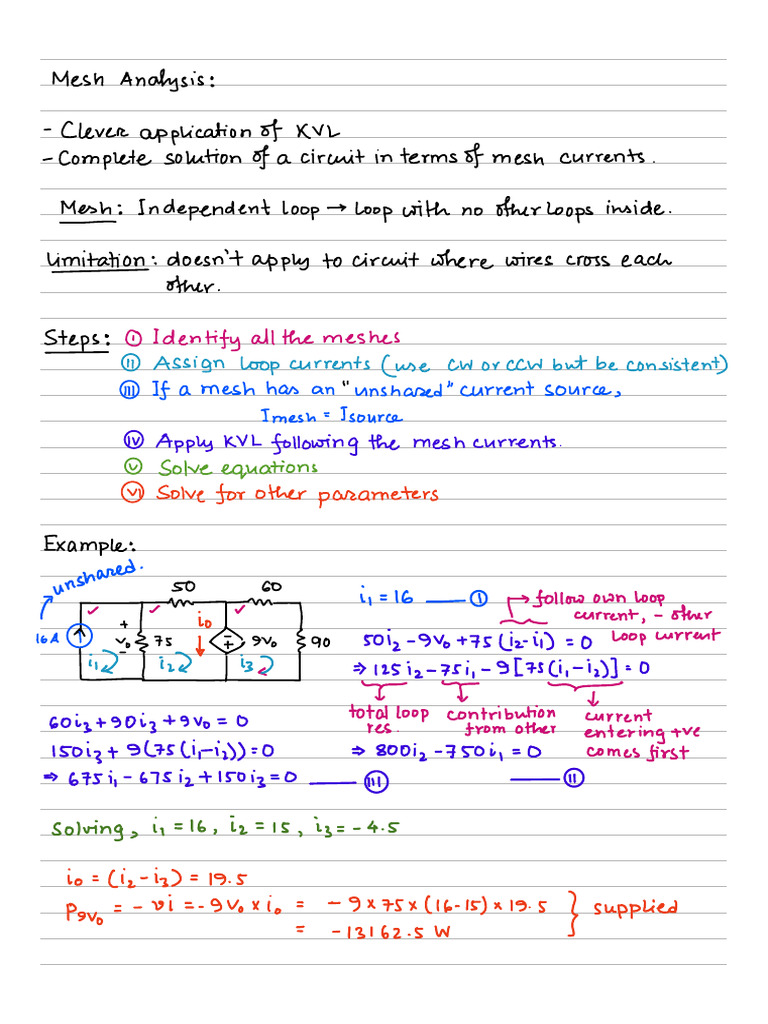 Mesh Analysis:
- Clever application of KVL
- Complete solution of a circuit in terms of mesh currents.
Mesh: Independent loop → Loop with no other loops inside.
Limitation: doesn't apply to circuit where wires cross each
other.
Steps: Ⓘ Identify all the meshes
Ⅱ Assign loop currents (use CW or CCW but be consistent)
Ⅲ If a mesh has an "unshared" current source,
Imesh = Isource
Ⅳ Apply KVL following the mesh currents.
Ⅴ Solve equations
Ⅵ Solve for other parameters
Example:
unshared.
50 60
16A + v₀ - 75 i₀ - + 9v₀ 90
i₁ i₂ i₃
i₁ = 16 —— Ⓘ
→ follow own loop
current, - other
loop current
50i₂ - 9v₀ + 75(i₂-i₁) = 0
⇒ 125i₂ - 75i₁ - 9[75(i₁-i₂)] = 0
total loop
res.
contribution
from other
current
entering +ve
comes first
⇒ 800i₂ - 750i₁ = 0
—— Ⅱ
60i₃ + 90i₃ + 9v₀ = 0
150i₃ + 9(75(i₁-i₂)) = 0
⇒ 675i₁ - 675i₂ + 150i₃ = 0 —— Ⅲ
Solving, i₁ = 16, i₂ = 15, i₃ = -4.5
i₀ = (i₂ - i₃) = 19.5
P9v₀ = - vi = -9v₀ × i₀ = -9 × 75 × (16-15) × 19.5 } supplied
= -13162.5 W